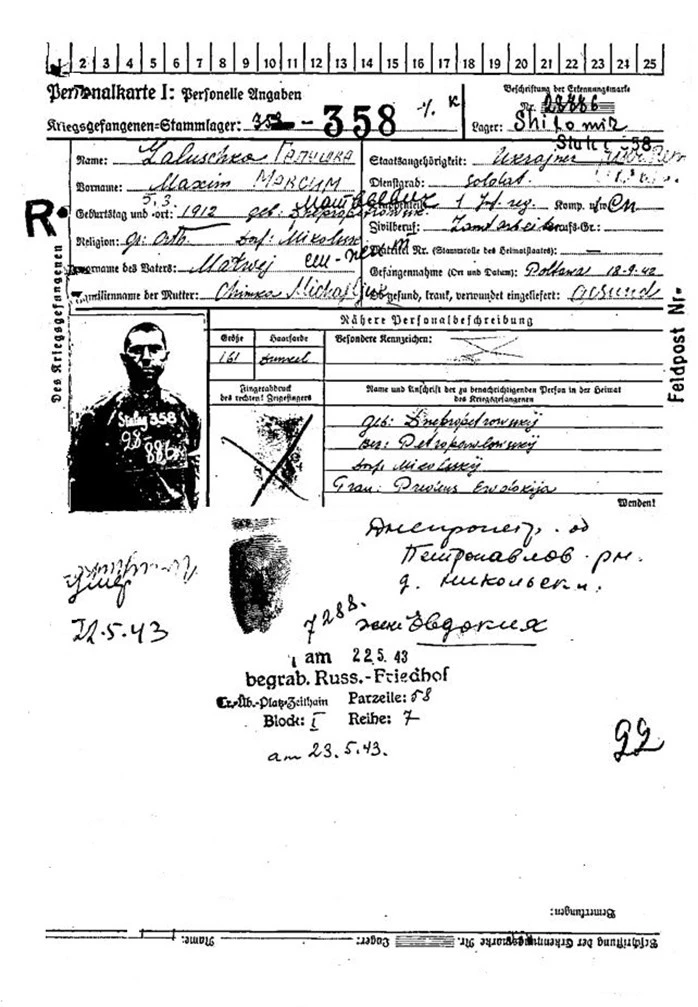 1 2 3 4 5 6 7 8 9 10 11 12 13 14 15 16 17 18 19 20 21 22 23 24 25
Personalkarte I: Personelle Angaben
Beschriftung der Erkennungsmarke
Nr. 28886
Kriegsgefangenen=Stammlager: 358 - 358
Lager: Shitomir
Stalag 358
Name: Galuschka Галушка
Staatsangehörigkeit: Ukrajner
Vorname: Maxim Максим
Dienstgrad: Soldat
Матвеевич
Geburtstag und -ort: 5.3. 1912 geb: Dnepropetrowsk
1 Komp. usw.
Religion: gr. Orth. Dorf: Mikolsk
Zivilberuf: Landarbeiter Berufs-Gr.:
Matrikel Nr. (Stammrolle des Heimatstaates):
Vorname des Vaters: Matwej
Gefangennahme (Ort und Datum): Poltawa 18-9-42
Familienname der Mutter: Chimka
Ob gesund, krank, verwundet eingeliefert: Gesund
R.
Des Kriegsgefangenen
Feldpost Nr.
Nähere Personalbeschreibung
Größe Haarfarbe Besondere Kennzeichen:
161 dunkel
Fingerabdruck
des rechten! Zeigefingers
Name und Anschrift der zu benachrichtigenden Person in der Heimat
des Kriegsgefangenen
Stalag 358
28-
886
geb: Dnepropetrowskij
Petropawlowskij
Dorf Mikolskij
Frau: Ewdokija
Wenden!
Днепропетр. об
Петропавлов. рн.
д. Никольски.
22.5.43
7288.
жена Евдокия
am 22 5. 43
begrab. Russ.-Friedhof
Tr.-Üb.-Platz-Zeithain Parzelle: 58
Block: I Reihe: 7
am 23.5.43.
99
Bemerkungen:
Beschriftung der Erkennungsmarke Nr. Lager: Name: